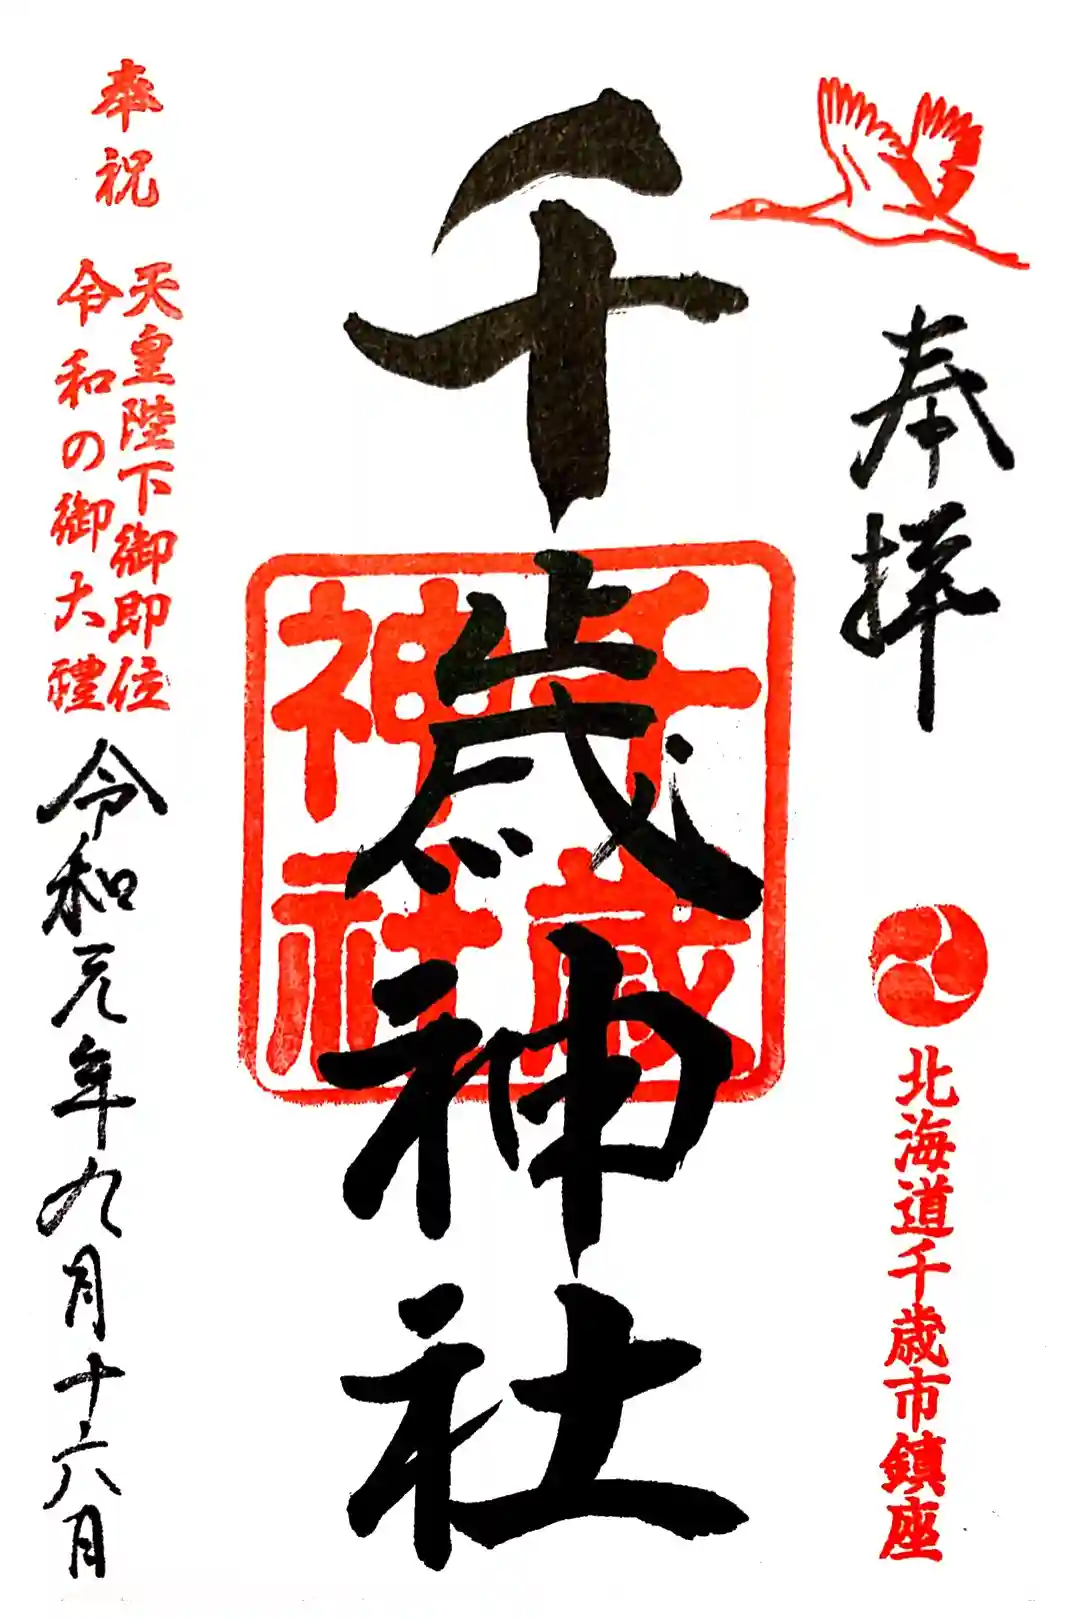 奉拝
北海道千歳市鎮座
千歳神社
千歳神社
奉祝
天皇陛下御即位
令和の御大禮
令和元年九月十六月